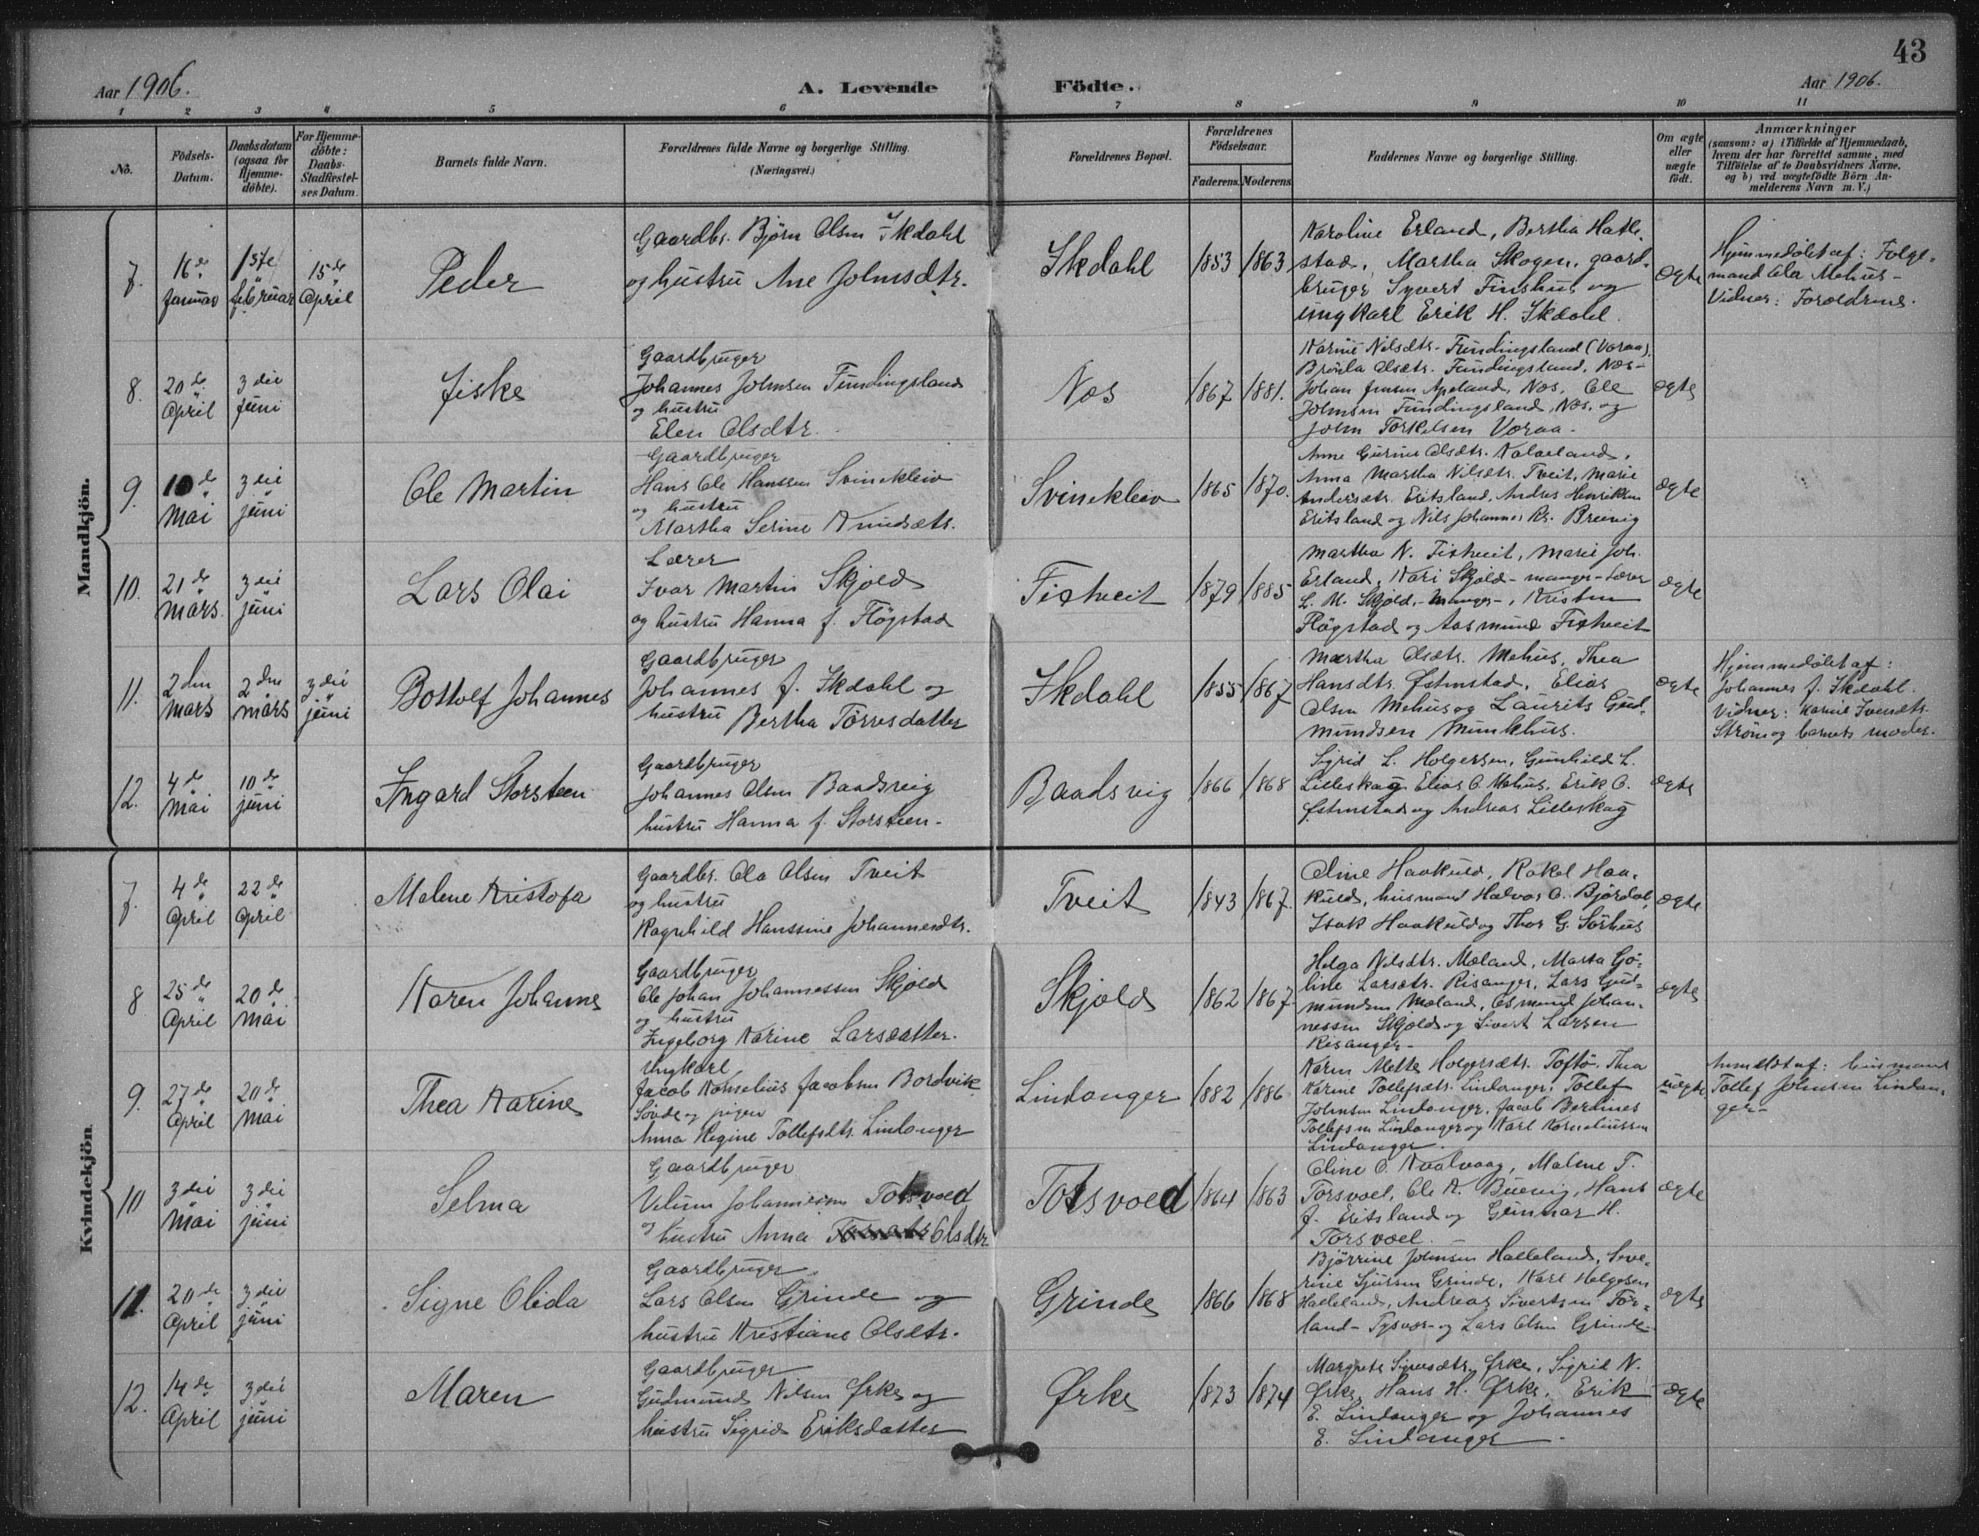 43
Aar 1906.
A. Levende Födte.
Aar 1906.
1 2 3 4 5 6 7 8 9 10 11
No.
Födsels-Datum.
Daabsdatum (ogsaa for Hjemme-döbte).
For Hjemme-döbte: Daabs-Stadfæstel-ses Datum.
Barnets fulde Navn.
Forældrenes fulde Navne og borgerlige Stilling.
(Næringsvei.)
Forældrenes Bopæl.
Forældrenes Födselsaar.
Faderens. Moderens
Faddernes Navne og borgerlige Stilling.
Om ægte eller uægte födt.
Anmærkninger
(saasom: a) i Tilfælde af Hjemmedaab,
hvem der har forrettet samme, med
Tilföielse af to Daabsvidners Navne,
og b) ved uægtefödte Börn An-
melderens Navn m. V.)
Mandkjön.
7. 16de Januar 1ste februar 15de April
Peder
Gaardbr. Bjørn Olsen Ikdahl
og hustru Ane Johnsdtr.
Ikdahl 1853 1863
Karoline Erland, Bertha Hatle-
stad, Martha Skogen, gaard-
bruger Syvert Finshus og
ungkarl Erik H. Ikdahl.
ægte
Hjemmedøbt af: Følge-
mand Ola Mehus-
Vidner: Forældrene.
8. 20de April 3die juni
Fiske
Gaardbruger
Johannes Johnsen Fundingsland
og hustru
Elen Olsdtr.
Nes 1867 1881.
Karine Nilsdtr. Fundingsland (Voraa).
Olsdtr. Fundingsland, Nes-
Johan Jensen Apeland, Nes, Ole
Johnsen Fundingsland, Nes, og
John Torkelsen Voraa.
ægte
9. 10de Mai 3die juni
Ole Martin
Gaardbruger
Hans Ole Hanssen Svinekleiv
og hustru
Martha Serine Knudsdtr.
Svinekleiv 1865 1870.
Anne Gurine Olsdtr.
Anna Martha Nilsdtr. Tveit, Marie
Andersdtr. Eritsland, Andres Henriksen
Eritsland og Nils Johannes Kr. Breivig
ægte
10. 21de Mars. 3die juni
Lars Olai
Lærer
Ivar Martin Skjold
og hustru Hanna f. Fløgstad
Fixtveit 1879 1885
Martha N. Fixtveit, Marie Joh.
Erland, Kari Skjold - Manger - Lærer
L. M. Skjold, - Manger -, Kristen
Fløgstad og Aasmund Fixtveit
ægte
11. 2den Mars 2den Mars 3die juni
Bottolf Johannes
Gaardbruger
Johannes J. Ikdahl og
hustru Bertha Tørresdatter
Ikdahl 1855 1867
Martha Olsdtr. Mehus, Thea
Hansdtr. Østenstad, Elias
Olsen Mehus og Laurits Gud-
mundsen Munkhus.
ægte
Hjemmedøbt af:
Johannes J. Ikdahl.
Vidner: Karine Ivensdtr.
Strøm og barnets moder.
12. 4de Mai 10de juni
Ingard Storsteen
Gaardbruger
Johannes Olsen Baadsvig
hustru Hanna f. Storsteen.
Baadsvig 1866 1868
Sigrid L. Holgersen, Gunhild L.
Lilleskog, Elias O. Mehus, Erik O.
Østenstad og Andreas Lilleskog
ægte
Kvindekjön
7. 4de April 22de April
Malene Kristofa
Gaardbr. Ola Olsen Tveit
og hustru
Ragnhild Hanssine Johannesdtr.
Tveit 1843 1867.
Oline Haakuld, Rakel Haa-
kuld, husmand Halvor O. Bjørdal,
Isak Haakuld og Thor G. Sørhus
ægte
8 25de April 20de Mai
Karen Johanne
Gaardbruger
Ole Johan Johannessen Skjold
og hustru
Ingeborg Karine Larsdatter.
Skjold 1862 1867.
Helga Nilsdtr. Mæland, Marta Go-
line Larsdtr. Risanger, Lars Gud-
mundsen Mæland, Osmund Johan-
nessen Skjold og Sivert Larsen
Risanger-
ægte
9. 27de April 20de Mai
Thea Karine
Ungkarl
Jacob Kornelius Jacobsen Bordvik
Søvde og pigen
Anna Regine Tollefsdtr. Lindanger
Lindanger 1882 1886
Karen Mette Holgersdtr. Toftø, Thea
Karine Tollefsdtr. Lindanger, Tollef
Johnsen Lindanger, Jacob Berdines
Tollefsen Lindanger og Karl Korneliussen
Lindanger.
uægte
Anmeldt af: husmand
Tollef Johnsen Lindan-
ger-
10 3die Mai 3die juni
Selma
Gaardbruger
Johannessen Torsvoed
og hustru Anna Olsdtr.
Torsvoed 1864 1863
Oline O. Kvalvaag, Malene T.
Torsvoel, Ole K. Buevig, Hans
J. Eritsland og Gunnar H.
Torsvoel.
ægte
11. 20de April 3die juni
Signe Olida
Gaardbruger
Lars Olsen Grinde og
hustru Kristiane Olsdtr.
Grinde 1866 1868
Bjørrine Johnsen Halleland, Seve-
rine Sjursen Grinde, Karl Helgesen
Halleland, Andreas Sivertsen Før-
land - Tysvær - og Lars Olsen Grinde
ægte
12. 14de April 3die juni
Maren
Gaardbruger
Gudmund Nilsen Ørke og
hustru Sigrid Eriksdatter
Ørke 1873 1874
Margrete Ørke, Sigrid N.
Ørke, Hans H. Ørke, Erik
E. Lindanger og Johannes
E. Lindanger.
ægte